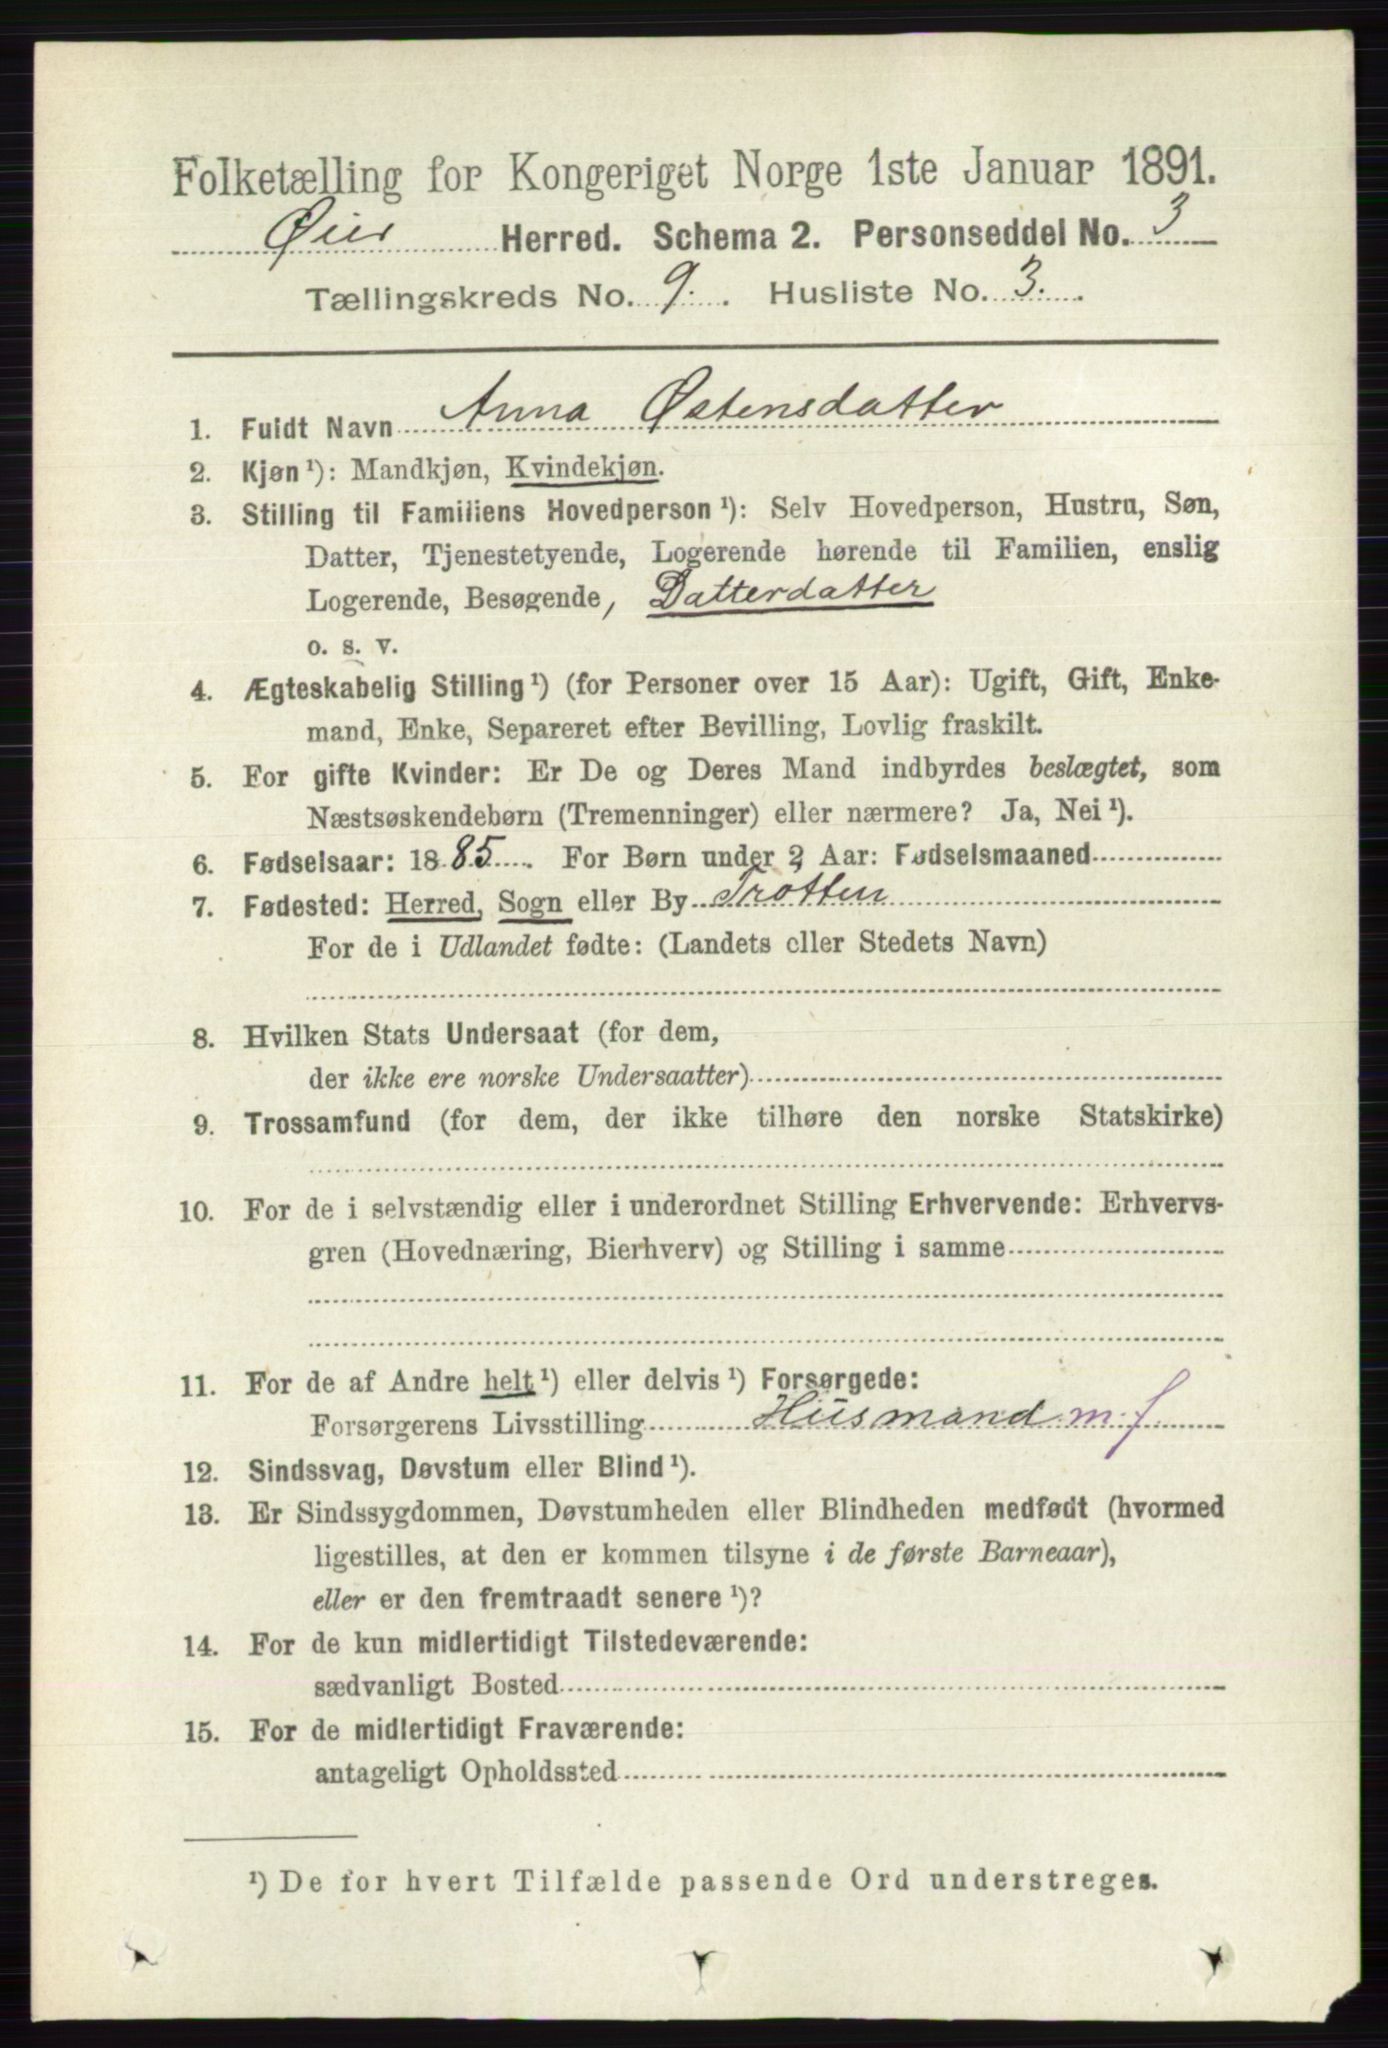 Folketælling for Kongeriget Norge 1ste Januar 1891.
Øier Herred. Schema 2. Personseddel No. 3
Tællingskreds No. 9. Husliste No. 3.
1. Fuldt Navn Anna Østensdatter
2. Kjøn ¹): Mandkjøn, Kvindekjøn.
3. Stilling til Familiens Hovedperson ¹): Selv Hovedperson, Hustru, Søn,
Datter, Tjenestetyende, Logerende hørende til Familien, enslig
Logerende, Besøgende, Datterdatter
o. s. v.
4. Ægteskabelig Stilling ¹) (for Personer over 15 Aar): Ugift, Gift, Enke-
mand, Enke, Separeret efter Bevilling, Lovlig fraskilt.
5. For gifte Kvinder: Er De og Deres Mand indbyrdes beslægtet, som
Næstsøskendebørn (Tremenninger) eller nærmere? Ja, Nei ¹).
6. Fødselsaar: 1885. For Børn under 2 Aar: Fødselsmaaned
7. Fødested: Herred, Sogn eller By Trotten
For de i Udlandet fødte: (Landets eller Stedets Navn)
8. Hvilken Stats Undersaat (for dem,
der ikke ere norske Undersaatter)
9. Trossamfund (for dem, der ikke tilhøre den norske Statskirke)
10. For de i selvstændig eller i underordnet Stilling Erhvervende: Erhvervs-
gren (Hovednæring, Bierhverv) og Stilling i samme
11. For de af Andre helt ¹) eller delvis ¹) Forsørgede:
Forsørgerens Livsstilling Husmand m. f.
12. Sindssvag, Døvstum eller Blind ¹).
13. Er Sindssygdommen, Døvstumheden eller Blindheden medfødt (hvormed
ligestilles, at den er kommen tilsyne i de første Barneaar),
eller er den fremtraadt senere ¹)?
14. For de kun midlertidigt Tilstedeværende:
sædvanligt Bosted
15. For de midlertidigt Fraværende:
antageligt Opholdssted
¹) De for hvert Tilfælde passende Ord understreges.